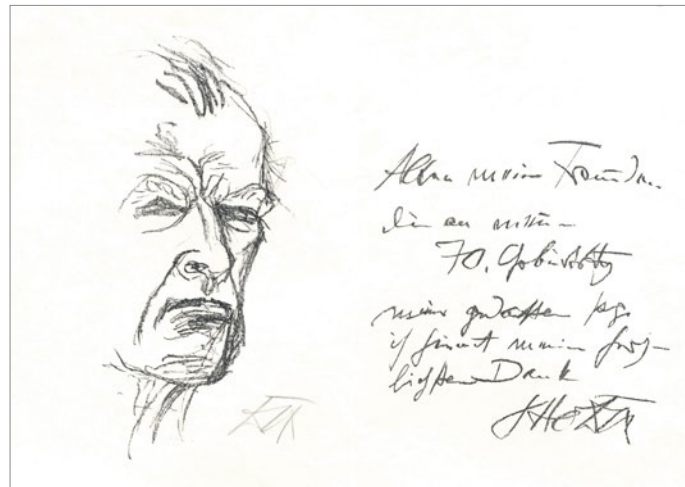 Allen meinen Freunden
die an mich
70. Geburtstag
meiner gedachten sage
ich hiermit meinen herz-
lichsten Dank